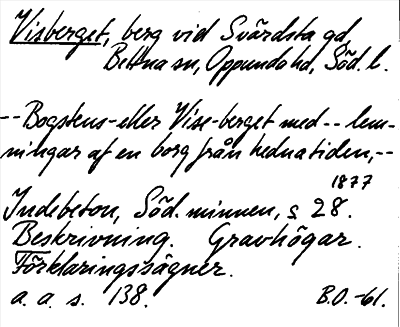 Visberget, berg vid Svärdsta gd,
Bettna sn, Oppunda hd, Söd. l.
-- Bogstens- eller Vise-berget med -- lem-
ningar af en borg från hednatiden, --
1877
Indebetou, Söd. minnen, s 28.
Beskrivning. Gravhögar.
Förklaringssägner.
a. a. s. 138. B.O. -61.